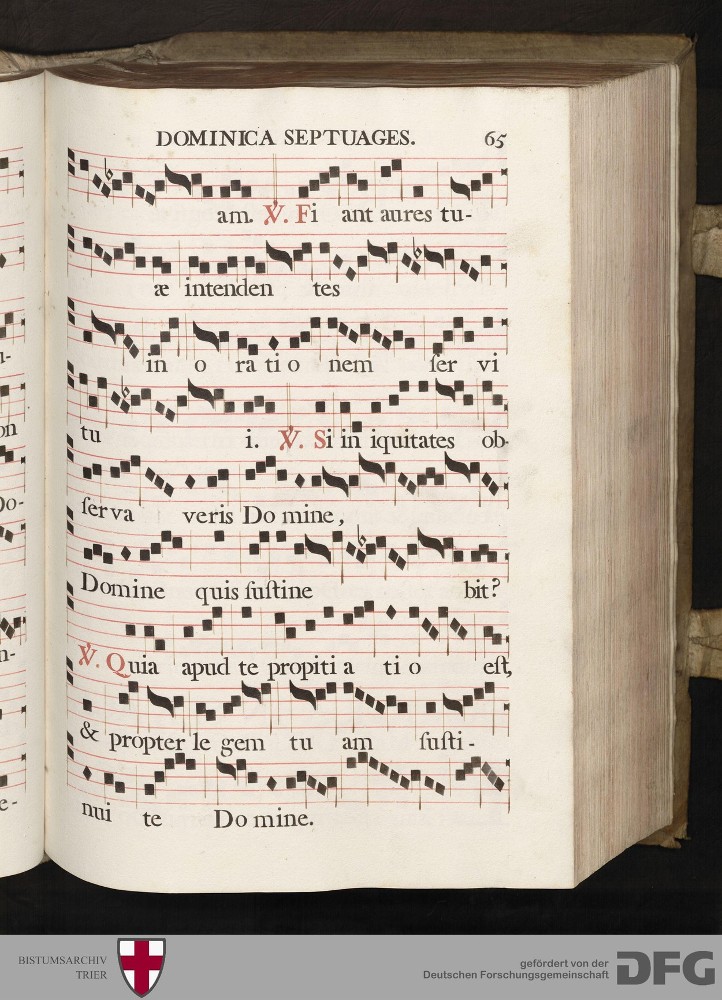 DOMINICA SEPTUAGES. 65
am. ℣. Fi ant aures tu-
æ intenden tes
in o ra ti o nem ſer vi
tu i. ℣. Si in iquitates ob-
ſerva veris Do mine,
Domine quis ſuſtine bit?
℣. Quia apud te propiti a ti o eſt,
& propter le gem tu am ſuſti-
nui te Do mine.
BISTUMSARCHIV
TRIER
gefördert von der
Deutschen Forschungsgemeinschaft
DFG